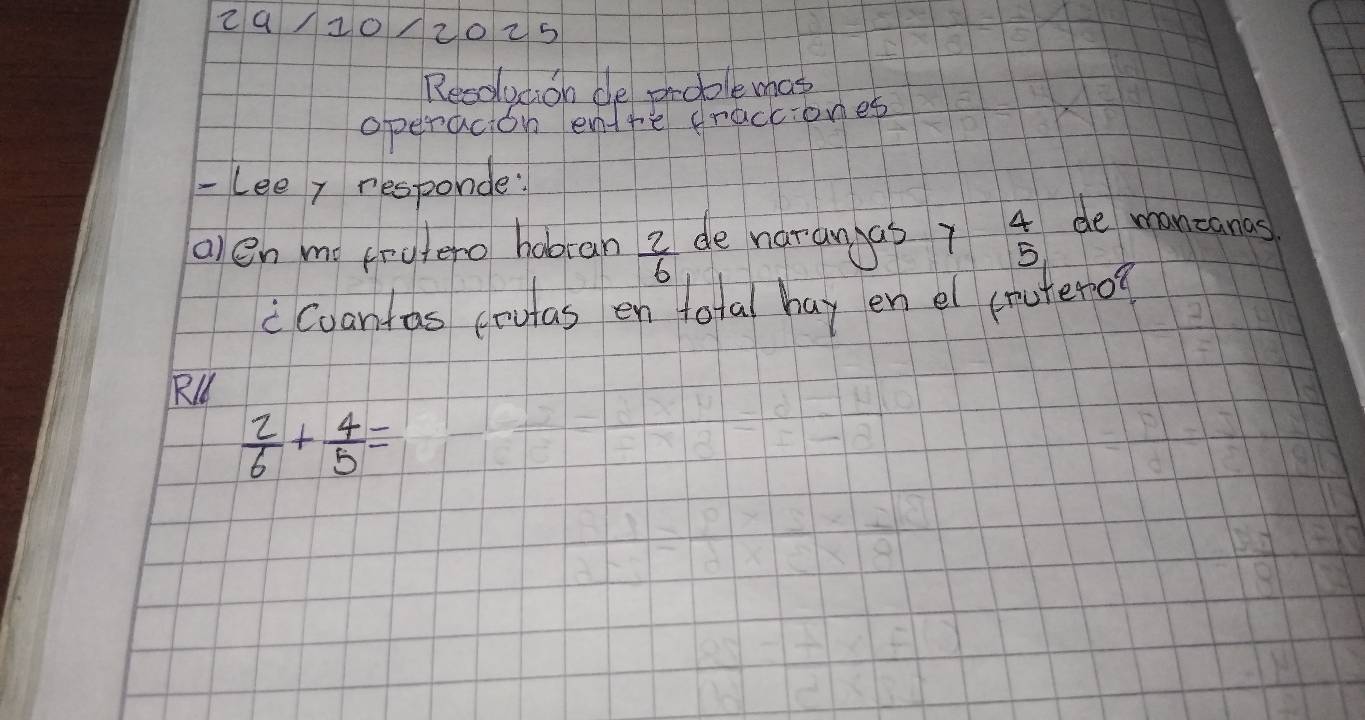 29/10/2025
Resolución de problemas
operación entre fracciones
- Lee y responde:
a) en mi frutero habian 2/6 de naranjas y 4/5 de manzanas.
¿Cuantas frutas en total hay en el frutero?
R//
2/6 + 4/5 =